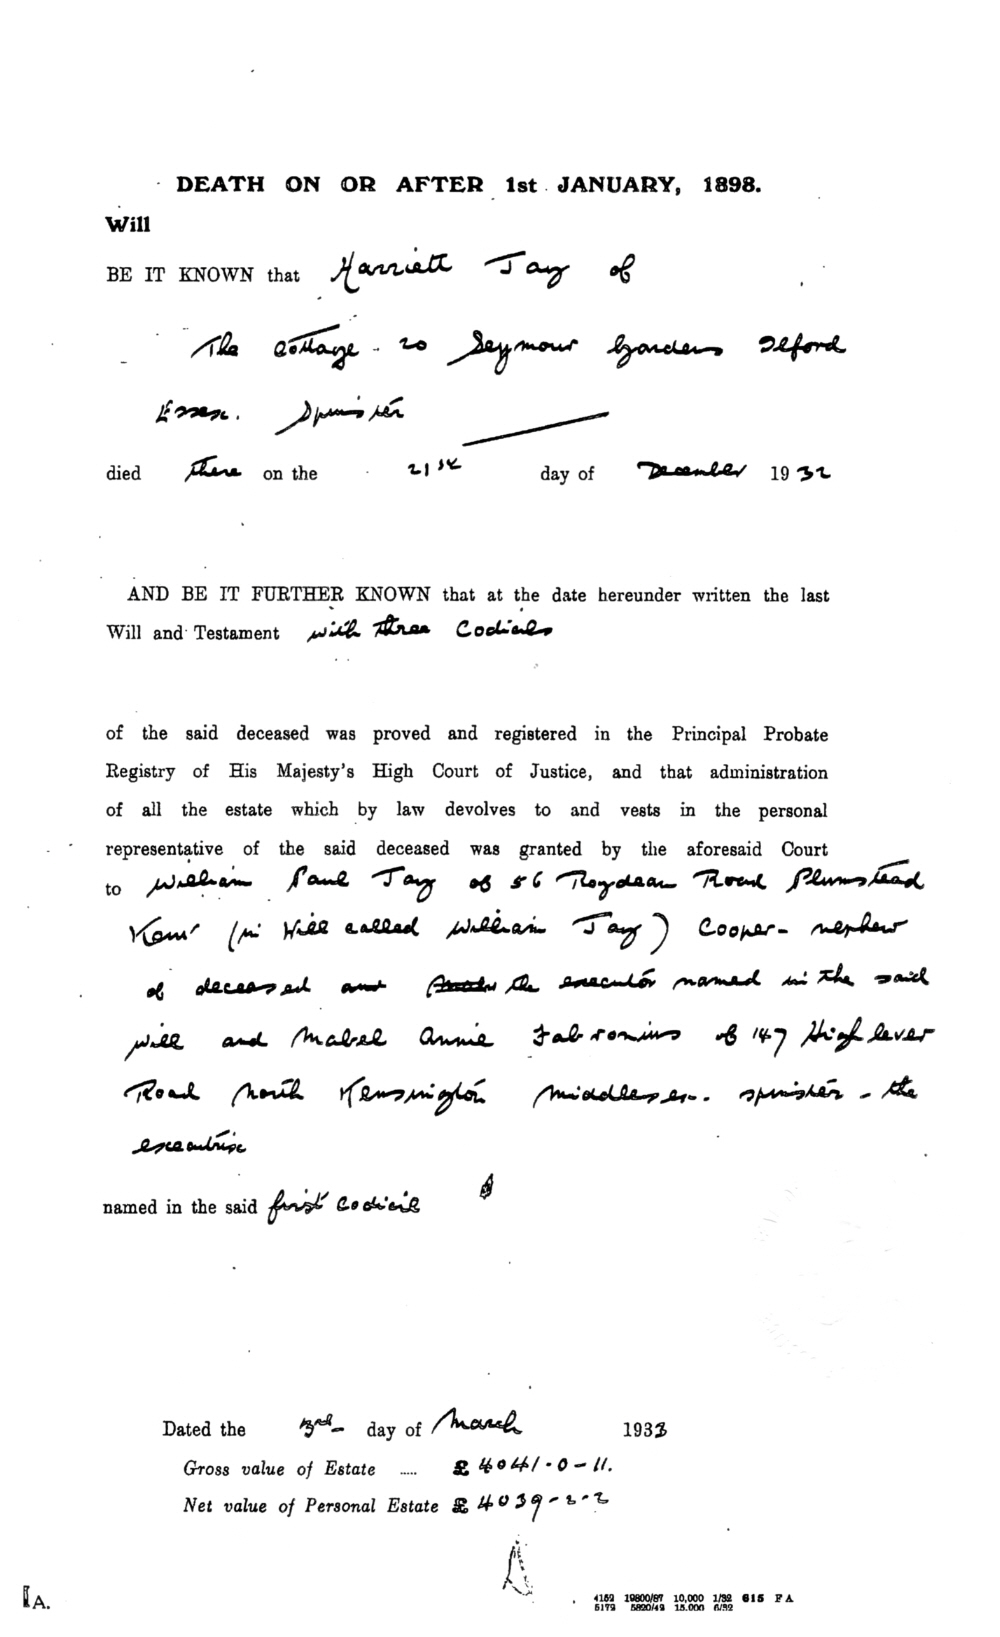 DEATH ON OR AFTER 1st JANUARY, 1898.
Will
BE IT KNOWN that Harriett Jay of
The Cottage - 20 Seymour Gardens Ilford
Essex. Spinster
died there on the 21st day of December 1932
AND BE IT FURTHER KNOWN that at the date hereunder written the last
Will and Testament with three Codicils
of the said deceased was proved and registered in the Principal Probate
Registry of His Majesty's High Court of Justice, and that administration
of all the estate which by law devolves to and vests in the personal
representative of the said deceased was granted by the aforesaid Court
to William Paul Jay of 56 Roydean Road Plumstead
Kent (in Will called William Jay) Cooper - nephew
of deceased and the executor named in the said
will and Mabel Annie Fabronius of 147 Highlever
Road North Kensington Middlesex. spinster - the
executrix
named in the said first Codicil
Dated the 3rd day of March 1933
Gross value of Estate ..... £ 4041-0-11.
Net value of Personal Estate £ 4039-2-2
A.
4152 19800/87 10,000 1/32 615 F A
5179 5820/49 15.000 6/32